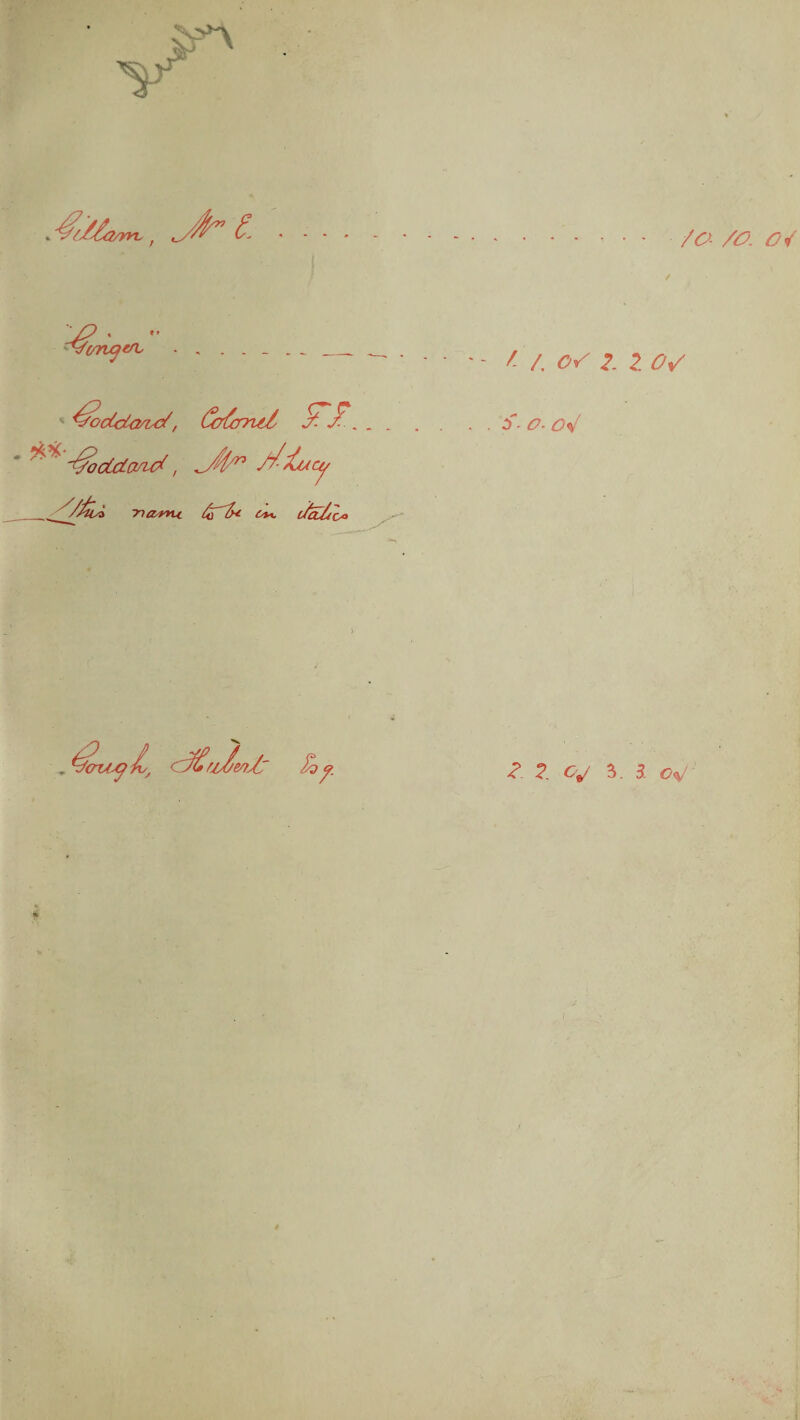 Gillam, Mr E. . . . . . . . . . . . . . . . 10. 10. 0 √
"Ginger" . . . . . . . . . . 1. 1. 0 √ 2. 2. 0 √
Goddard, Colonel F.F. . . . . . . . 5. 0. 0 √
** Goddard, Mr H. Lucy
This name to be in italics
Gough, Hubert 2. 2. 0 √ 3. 3. 0 √